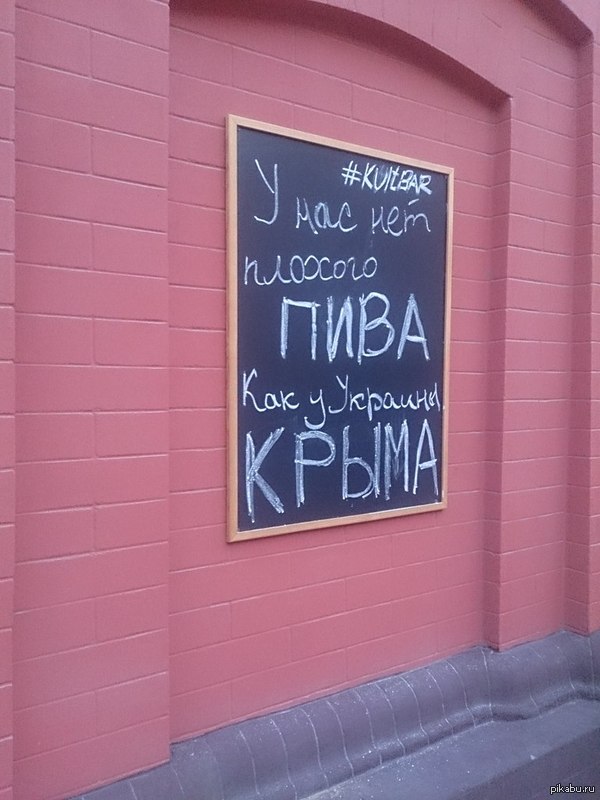 #KULTBAR
У нас нет
плохого
ПИВА
Как у Украины
КРЫМА
pikabu.ru